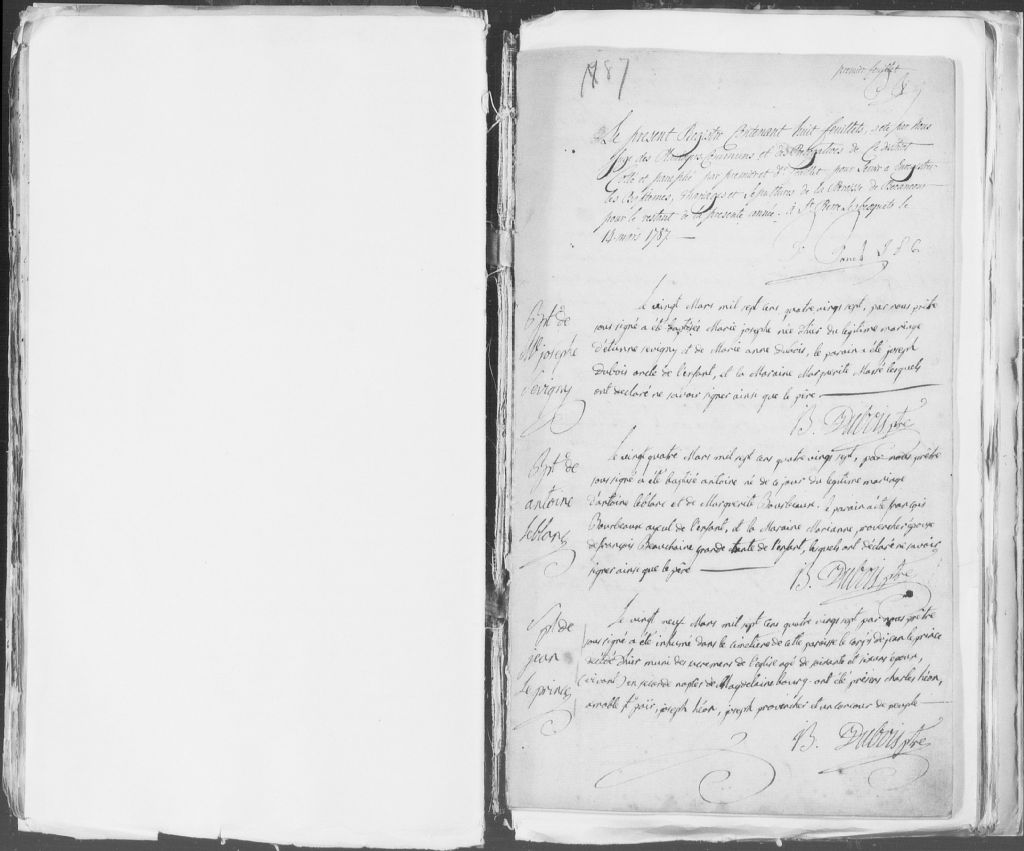 1787
premier feuillet
Le present Registre Contenant huit feuillets, par Nous
Juge des Communs et de ce district
Cotté et paraphé par premier et d. pour Servir a Enregistrer
les Baptêmes, Mariages et Sépultures de la Paroisse de Becancour
pour le restant de la presente année. à St Pierre les becquets le
14 mars 1787.
Bpt. de
M. josephe
Sevigny
Le vingt Mars mil sept cens quatre vings sept, par nous prêtre
soussigné a été baptisée Marie josephe née d'hier du legitime mariage
d'étienne sevigny et de Marie anne dubois, le parain a été joseph
Dubois oncle de l'enfant, et la Maraine Marguerite Massé lesquels
ont declaré ne savoir signer ainsi que le père
B. Dubois ptre
Bpt. de
antoine
leblanc
Le vingt quatre Mars mil sept cens quatre vings sept, par nous prêtre
soussigné a été baptisé antoine né de ce jour du legitime mariage
d'antoine leblanc et de Marguerite Bourbeaux. le parain a été françois
Bourbeaux ayeul de l'enfant, et la Maraine Marianne provencher épouse
de françois Beauchaine grande tante de l'enfant, lesquels ont déclaré ne savoir
signer ainsi que le père
B. Dubois ptre
Spt. de
jean
Le prince
Le vingt neuf Mars mil sept cens quatre vings sept par nous prêtre
soussigné a été inhumé dans le cimetiere de cette paroisse le corps de jean le prince
décédé d'hier muni des sacremens de l'église agé de soixante et époux,
(vivant) en seconde nopces de Magdelaine bourg. ont été présens charles héon,
amable joseph héon, joseph provencher et un concour de peuple
B. Dubois ptre